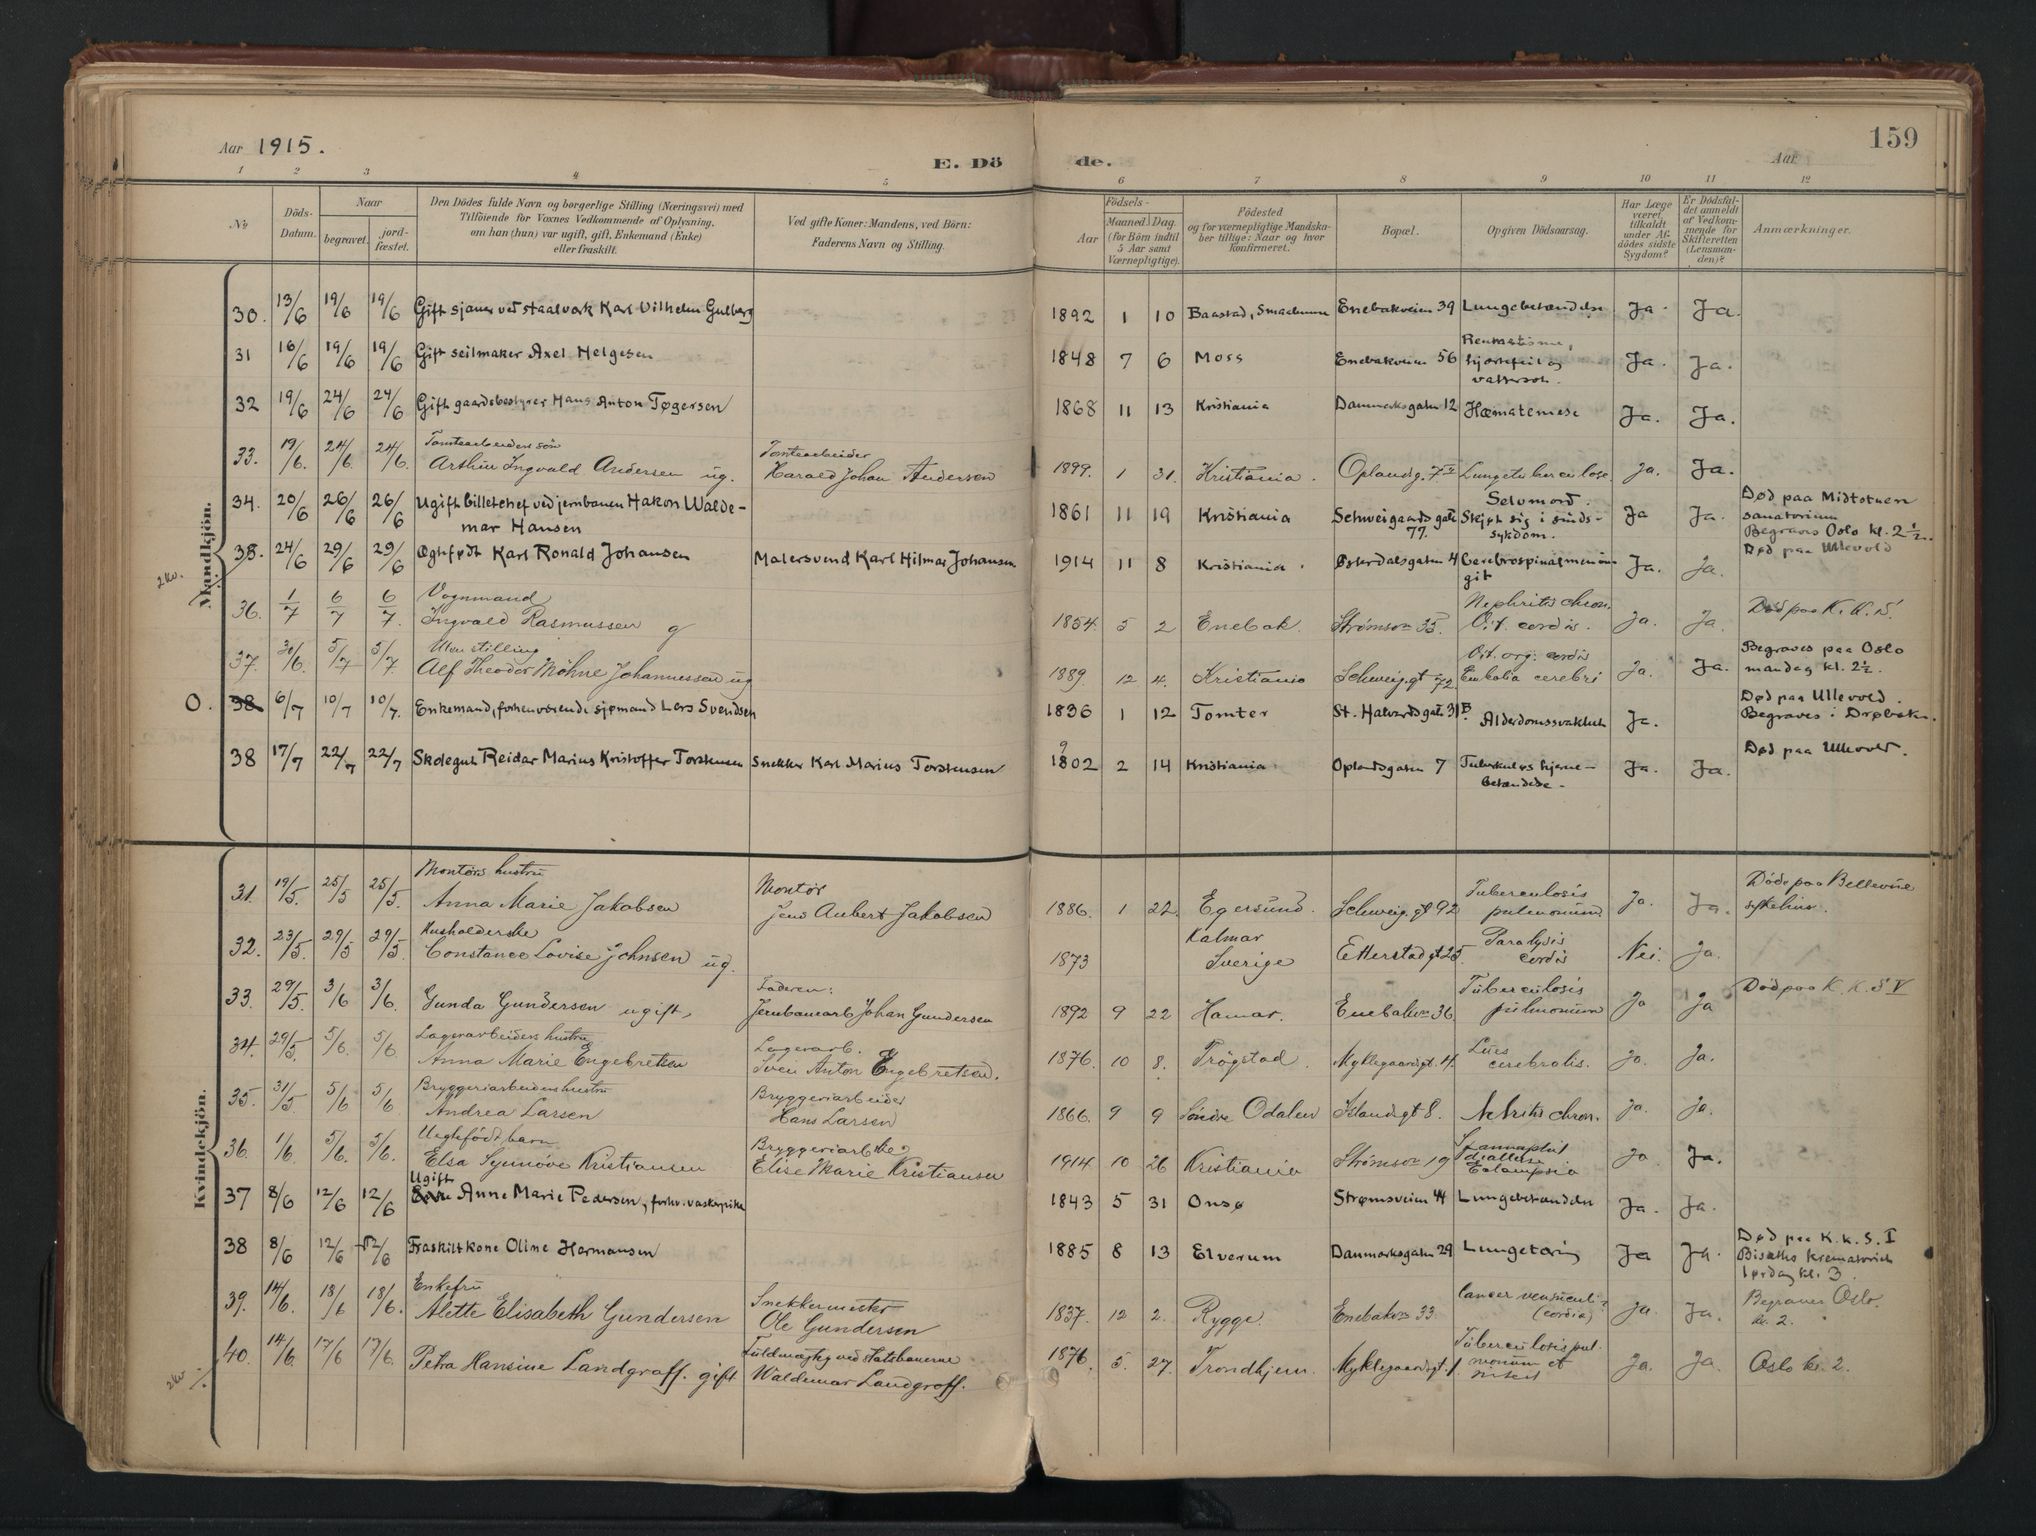 Aar 1915.
E. Dö de.
Aar
159
1 2 3 4 5 6 7 8 9 10 11 12
No
Döds-Datum.
Naar
begravet. jord-fæstet.
Den Dödes fulde Navn og borgerlige Stilling (Næringsvei) med
Tilföiende for Voxnes Vedkommende af Oplysning,
om han (hun) var ugift, gift, Enkemand (Enke)
eller fraskilt.
Ved gifte Koner: Mandens, ved Börn:
Faderens Navn og Stilling.
Födsels-
Aar Maaned. Dag.
(for Börn indtil
5 Aar samt
Værnepligtige).
Födested
og for værnepligtige Mandska-
ber tillige: Naar og hvor
konfirmeret.
Bopæl.
Opgiven Dödsaarsag.
Har Læge
været
tilkaldt
under Af-
dödes sidste
Sygdom?
Er Dödsfal-
det anmeldt
af Vedkom-
mende for
Skifteretten
(Lensman-
den)?
Anmærkninger.
Mandkjön.
30. 13/6 19/6 19/6 Gift sjauer ved staalverk Karl Vilhelm Gulberg 1892 1 10 Baastad, Smaalenene Enebakveien 39 Lungebetændelse Ja. Ja.
31 16/6 19/6 19/6 Gift seilmaker Axel Helgesen 1848 7 6 Moss Enebakveien 56 Reumatisme, hjertefeil og vattersot. Ja. Ja.
32 19/6 24/6 24/6 Gift gaardsbestyrer Hans Anton Tøgersen 1868 11 13 Kristiania Danmarksgaten 12 Hæmatemese Ja. Ja.
33. 19/6. 24/6. 24/6. Tomtearbeiders søn
Arthur Ingvald Andersen ug. Tomtearbeider
Harald Johan Andersen 1899. 1 31. Kristiania. Oplandsg. 7 II Lungetuberculose. Ja. Ja.
34. 20/6 26/6 26/6 Ugift billetchef ved jernbanen Hakon Walde-
mar Hansen 1861 11 19 Kristiania Schweigaards gate 77. Selvmord. Skjøt sig i sinds-
sykdom. Ja Ja. Død paa Midtstuen
sanatorium
Begraves Oslo kl. 2 1/2.
2 kv.
38. 24/6 29/6 29/6 Egtefødt Karl Ronald Johansen Malersvend Karl Hilmar Johansen 1914 11 8 Kristiania. Østerdalsgaten 4 Cerebrospinalmenin
git Ja. Ja. Død paa Ullevold
36. 1/7 6/7 6/7. Vognmand
Ingvald Rasmussen g 1854. 5 2 Enebak. Strømsvn 35. Nephritis chron.
Vit. cordis. Ja. Ja. Død paa K. K. S.
37. 30/6. 5/7 5/7 Uten stilling
Alf Theodor Möhne Johannessen ug 1889. 12 4. Kristiania Schweig. gt 72. Vit. org. cordis
Embolia cerebri Ja. Ja. Begraves paa Oslo
mandag kl. 2 1/2.
O. 38 6/7 10/7 10/7. Enkemand, forhenværende sjømand Lars Svendsen 1836 1 12 Tomter St. Halvardsgate 31 B. Alderdomssvakhet Ja. Død paa Ullevold.
Begraves i Drøbak.
38 17/7 22/7 22/7 Skolegut Reidar Marius Kristoffer Torstensen Snekker Karl Marius Torstensen 9
1802 2 14 Kristiania Oplandsgaten 7 Tuberkuløs hjerne-
betændelse. Ja. Ja. Død paa Ullevold.
Kvindekjön.
31. 19/5. 25/5 25/5. Montørs hustru
Anna Marie Jakobsen Montør
Jens Aubert Jakobsen 1886. 1 22. Egersund. Schweig. gt 92 Tuberculosis
pulmonum. Ja. Ja. Döde paa Bellevue
sykehus.
32. 23/5. 29/5 29/5. Husholderske
Constance Lovise Johnsen ug. 1873 Kalmar
Sverige Etterstadgt 25. Paralysis
cordis Nei. Ja.
33. 29/5 3/6 3/6. Gunda Gundersen ugift, Faderen:
Jernbanearb Johan Gundersen 1892 9 22 Hamar. Enebakvn 36. Tuberculosis
pulmonum Ja Ja Död paa K. K. S V
34. 29/5. 5/6. 5/6. Lagerarbeiders hustru
Anna Marie Engebretsen Lagerarb.
Sven Anton Engebretsen. 1876. 10 8. Trögstad. Myklegaardsgt. 4. Lues
cerebralis. Ja. Ja.
35. 31/5. 5/6 5/6 Bryggeriarbeiders hustru
Andrea Larsen Bryggeriarbeider
Hans Larsen 1866. 9 9 Söndre Odalen Islandsgt 8. Nefritis chron. Ja. Ja.
36. 1/6. 5/6. 5/6. Uegtefödt barn
Elsa Synnöve Kristiansen Bryggeriarbske
Elise Marie Kristiansen 1914. 10 26 Kristiania Strömsvn 19
Eclampsia Ja. Ja.
37 8/6 12/6 12/6 Ugift
Anne Marie Pedersen, forhv. vaskepike 1843 5 31 Onsø Strømsveien 44 Lungebetændelse Ja. Ja.
38 8/6 12/6 12/6 Fraskilt kone Oline Hermansen 1885 8 13 Elverum Danmarksgaten 29 Lungetæring Ja Ja. Død paa K. K. S. I
Bisættes krematoriet
lørdag kl. 3.
39. 14/6. 18/6 18/6. Enkefru
Alette Elisabeth Gundersen Snekkermester
Ole Gundersen 1837. 12 2. Rygge. Enebakvn 33. Cancer ventriculi?
(cordia) Ja. Ja. Begraves Oslo.
kl. 2.
2 kv
40. 14/6. 17/6 17/6. Petra Hansine Landgraff. gift Fuldmægtig ved statsbanerne
Waldemar Landgraff. 1876. 5. 27. Trondhjem. Myklegaardsgt. 1. Tuberculosis pul-
monum et Ja. Ja. Oslo kl. 2.